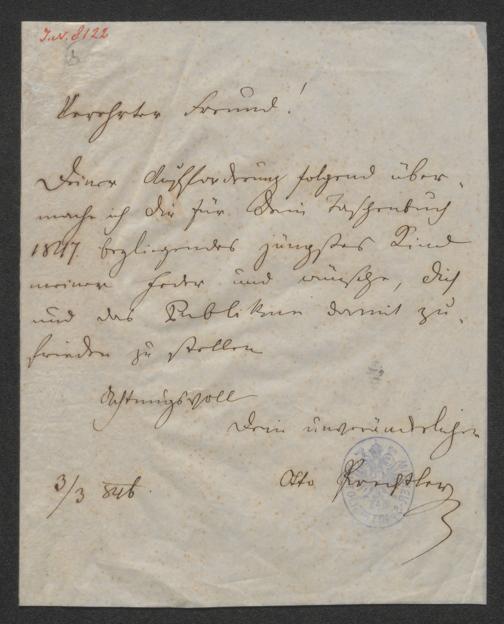 I.N. 8122
Verehrter Freund!
Deiner Aufforderung folgend über-
mache ich Dir für Dein Taschenbuch
1847 beyliegendes jüngstes Kind
meiner Feder und wünsche, Dich
und das Publikum damit zu-
frieden zu stellen
Achtungsvoll
Dein unveränderlicher
3/3 846.
Otto Prechtler